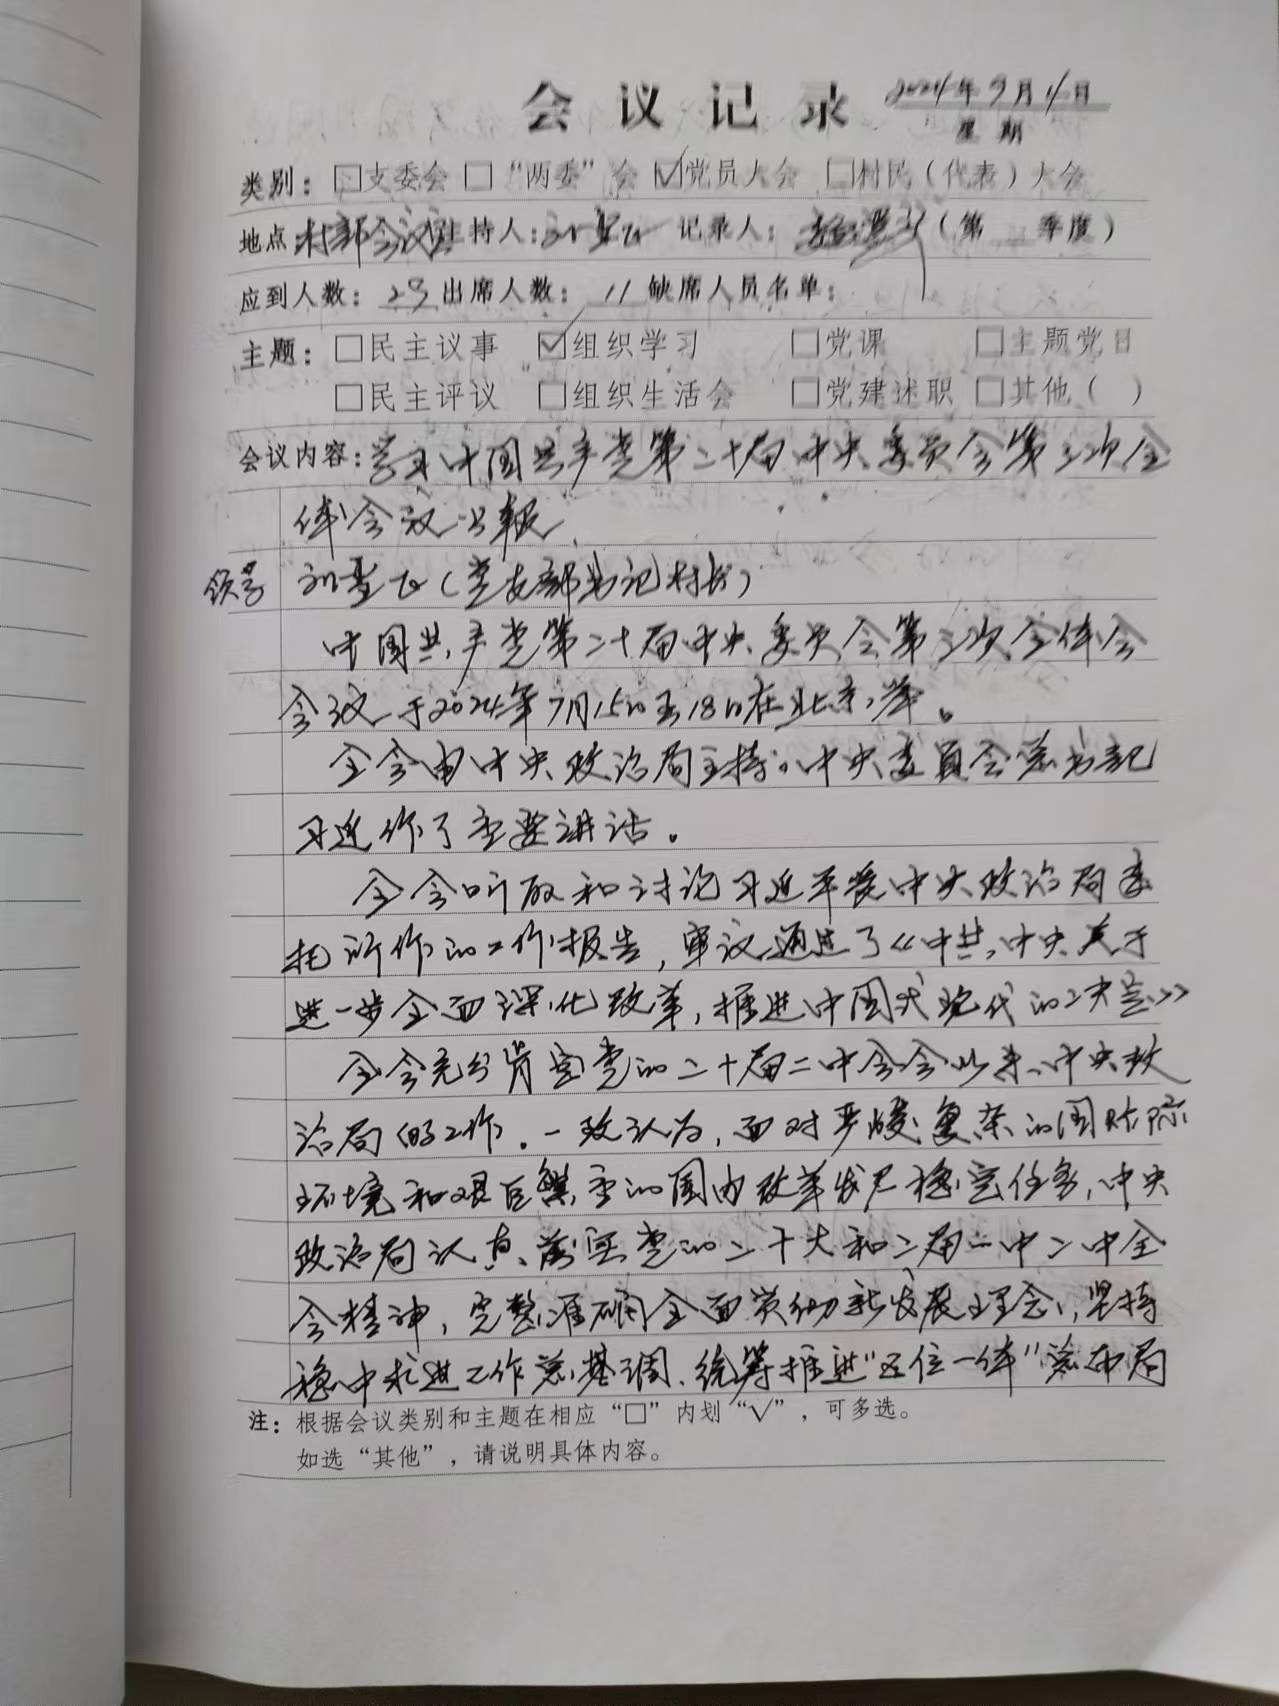 会议记录 2024年9月11日
星期
类别：□支委会 □“两委”会 ☑党员大会 □村民（代表）大会
地点：村部会议室 主持人： 记录人： （第 季度）
应到人数： 出席人数：11 缺席人员名单：
主题：□民主议事 ☑组织学习 □党课 □主题党日
□民主评议 □组织生活会 □党建述职 □其他（ ）
会议内容：学习中国共产党第二十届中央委员会第三次全
体会议公报
领学 刘 （党支部书记村长）
中国共产党第二十届中央委员会第三次全体会
会议于2024年7月15日至18日在北京举。
全会由中央政治局主持。中央委员会总书记
习近作了重要讲话。
全会听取和讨论习近平受中央政治局委
托所作的工作报告，审议通过了《中共中央关于
进一步全面深化改革，推进中国式现代的决定》
全会充分肯定党的二十届二中全会以来中央政
治局的工作。一致认为，面对严峻复杂的国际
环境和艰巨繁重的国内改革发展稳定任务，中央
政治局认真落实党的二十大和二届一中二中全
会精神，完整准确全面贯彻新发展理念，坚持
稳中求进工作总基调、统筹推进“五位一体”总布局
注：根据会议类别和主题在相应“□”内划“√”，可多选。
如选“其他”，请说明具体内容。